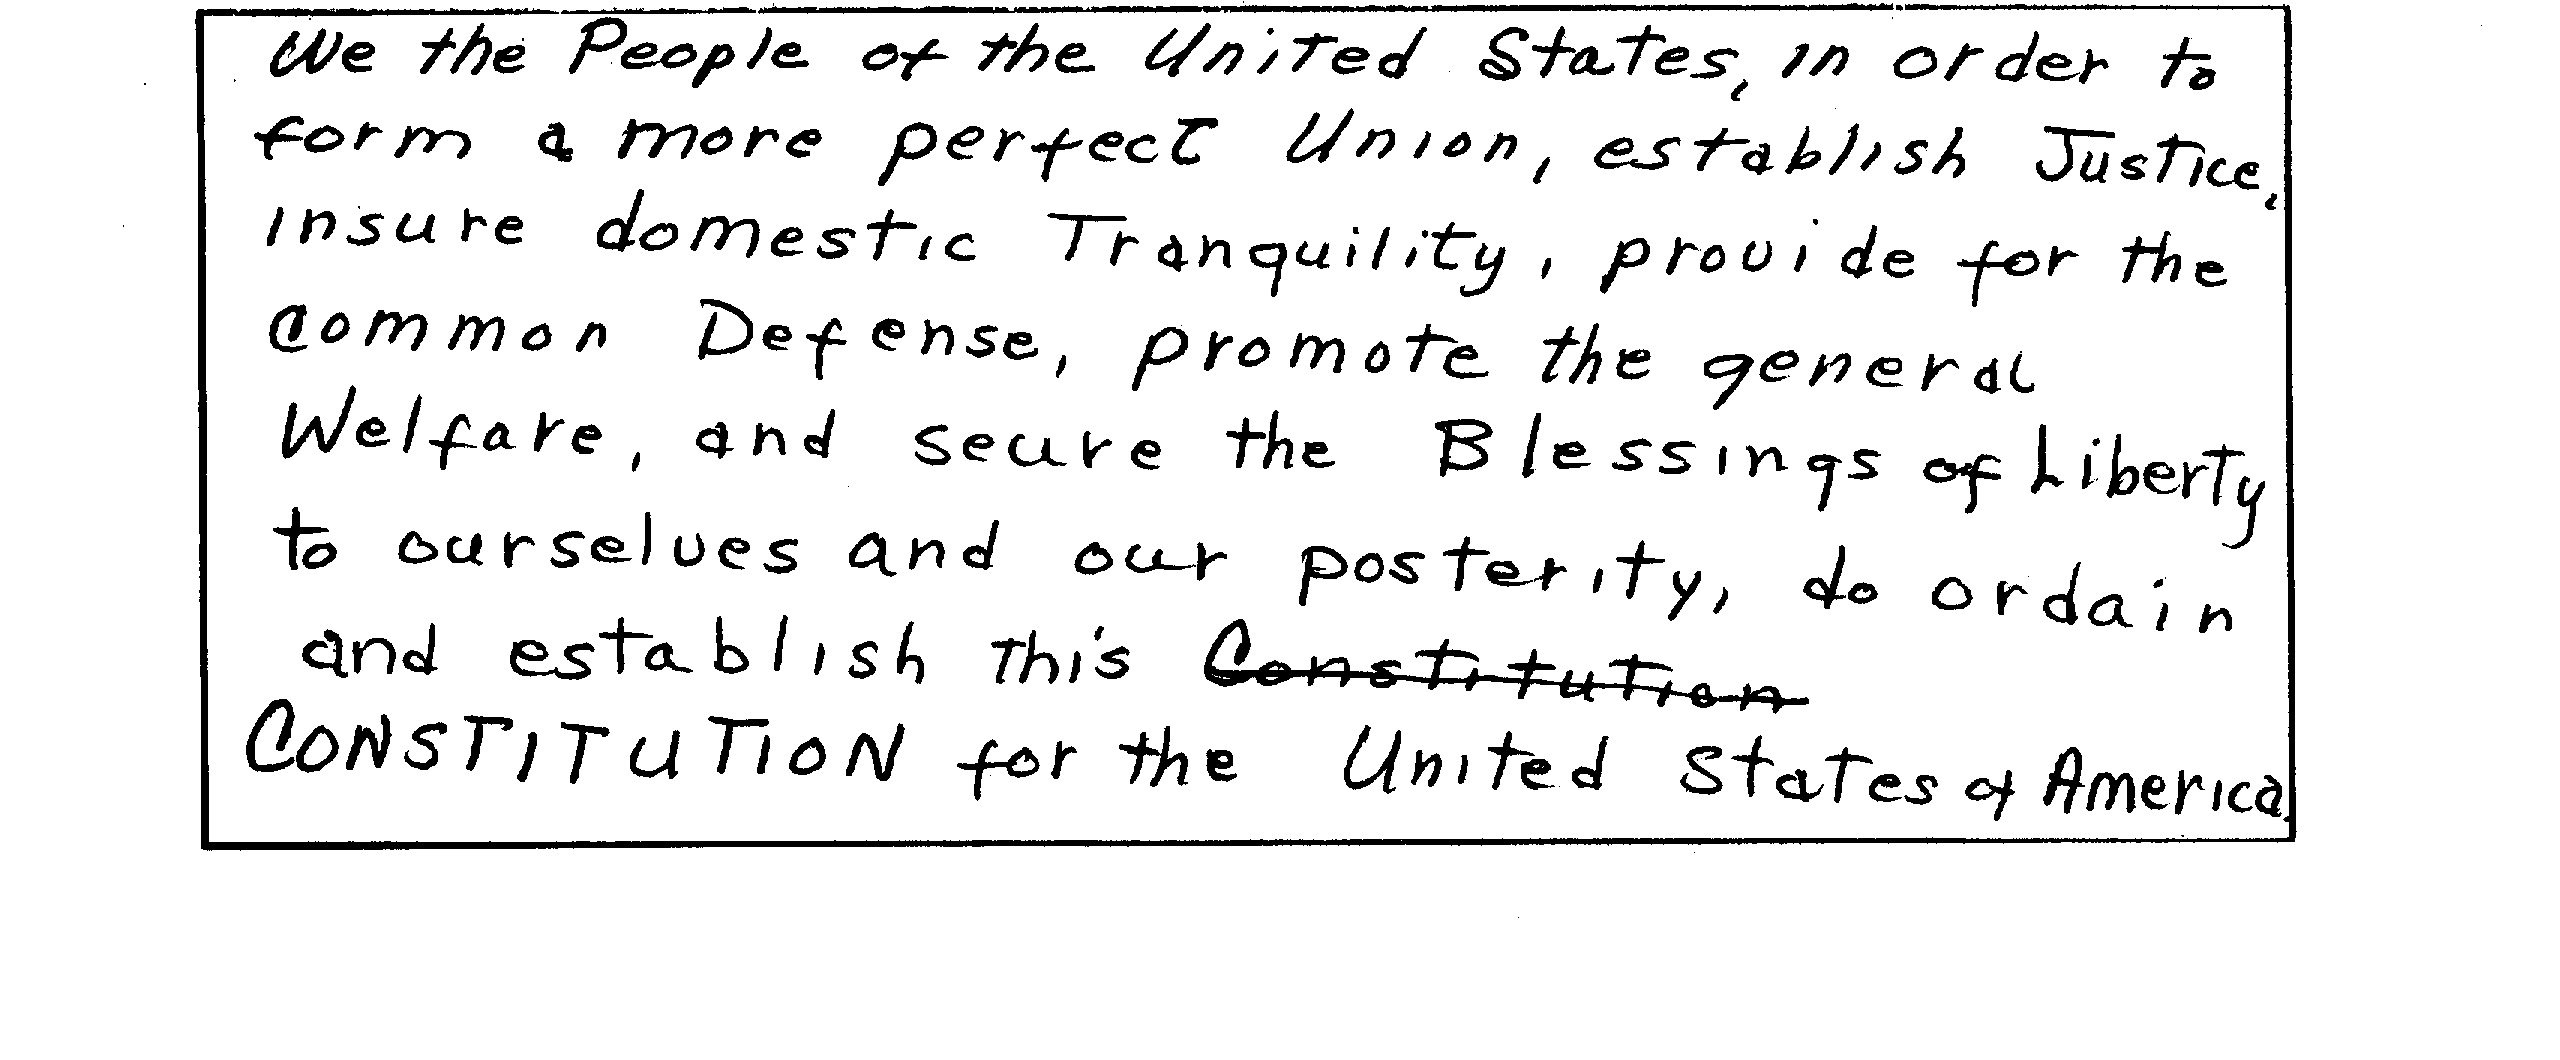 We the People of the United States, in order to
form a more perfect Union, establish Justice,
insure domestic Tranquility, provide for the
common Defense, promote the general
Welfare, and secure the Blessings of Liberty
to ourselves and our posterity, do ordain
and establish this ~~Constitution~~
CONSTITUTION for the United States of America.